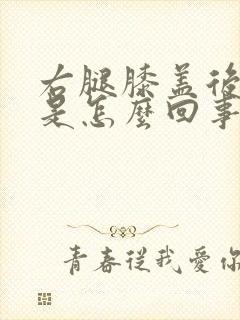 右腿膝盖後
是怎麼回事
青春從我愛你